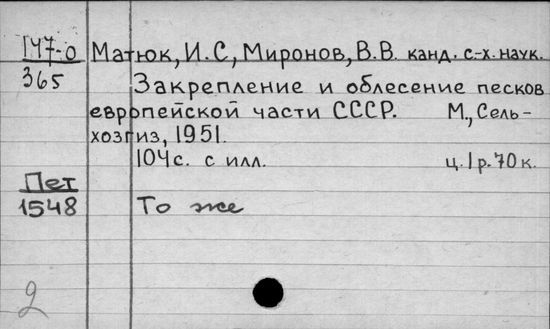 147-0 Матюк, И.С, Миронов, В.В. канд. с-х. наук.
365 Закрепление и облесение песков
европейской части СССР. М., Сель-
хозгиз, 1951.
104 с. с илл. ц. 1 р. 70 к.
Пет
1548 То же
2